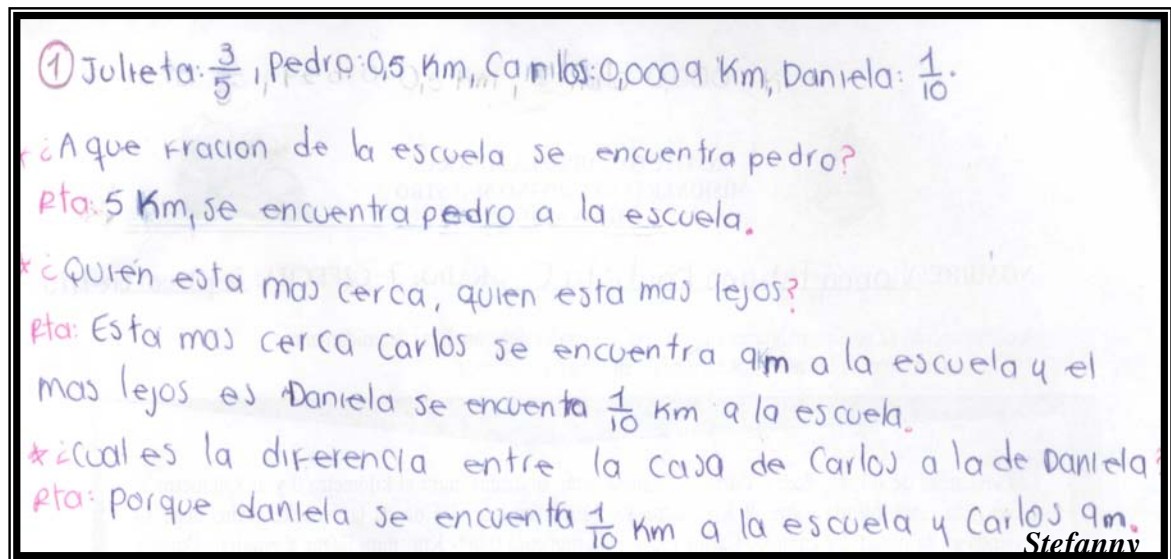 ① Julieta: 3/5, Pedro: 0,5 Km, Camilos: 0,0009 Km, Daniela: 1/10.
¿A que fracion de la escuela se encuentra pedro?
Rta: 5 Km, se encuentra pedro a la escuela.
* ¿Quién esta mas cerca, quien esta mas lejos?
Rta: Esta mas cerca carlos se encuentra 9km a la escuela y el
mas lejos es Daniela se encuenta 1/10 Km a la escuela.
* ¿Cual es la diferencia entre la casa de Carlos a la de Daniela?
Rta: porque daniela se encuenta 1/10 Km a la escuela y Carlos 9m.
Stefanny